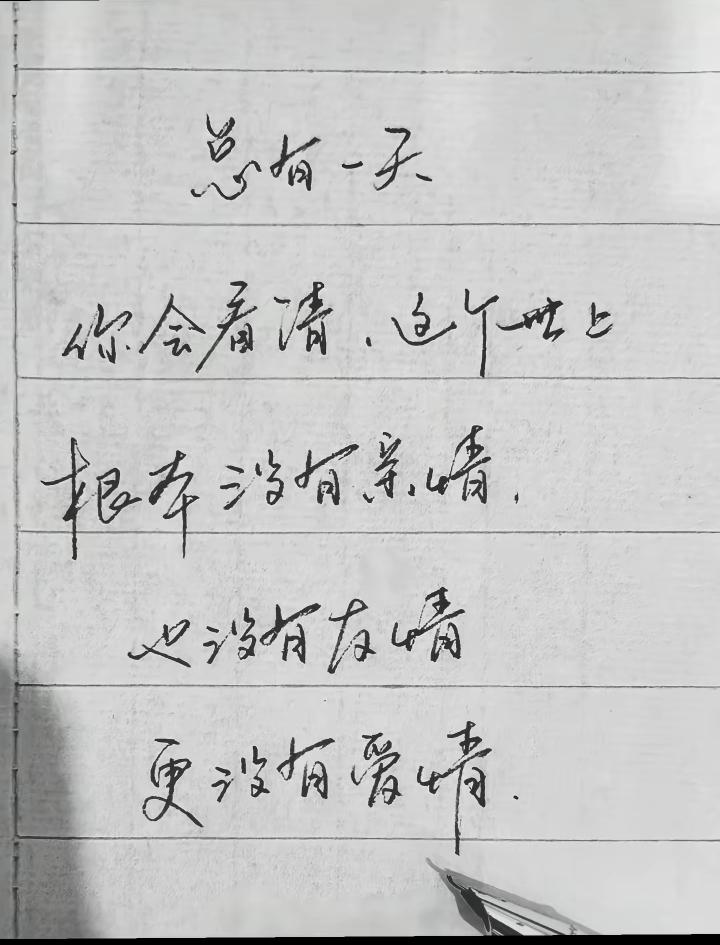 总有一天
你会看清、这个世上
根本没有亲情，
也没有友情
更没有爱情.